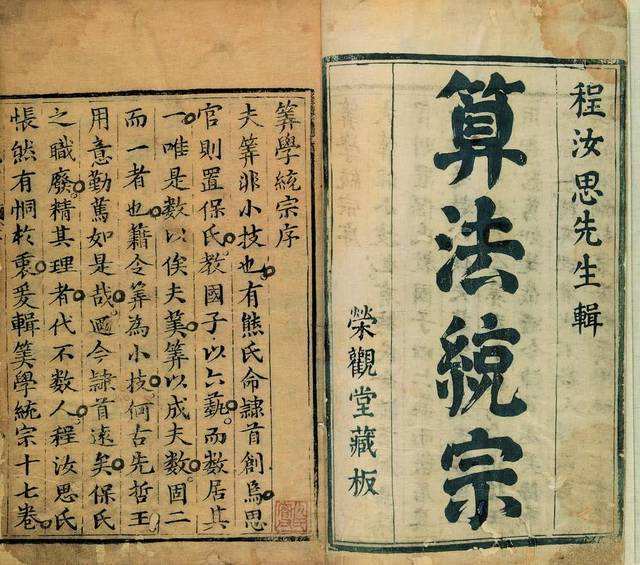 程汝思先生輯
算法統宗
榮觀堂藏板
筭學統宗序
夫筭非小技也有熊氏命隷首創焉思
官則置保氏教國子以六藝而數居其
一唯是數以俟夫筭筭以成夫數固二
而一者也籍令筭為小技何古先哲王
用意勤篤如是哉廼今隷首遠矣保氏
之職廢精其理者代不數人程汝思氏
悵然有恫於衷爰輯筭學統宗十七卷